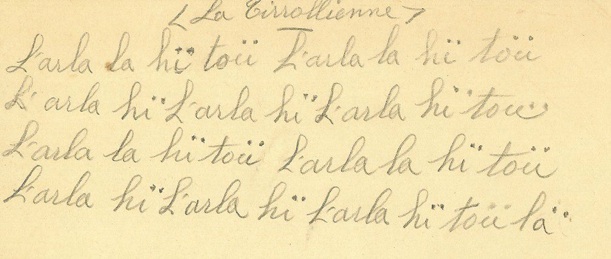 (La Tirrollienne)
L'arla la hï toü L'arla la hï toü
L'arla hï L'arla hï L'arla hï toü
L'arla la hï toü L'arla la hï toü
L'arla hï L'arla hï L'arla hï toü lä